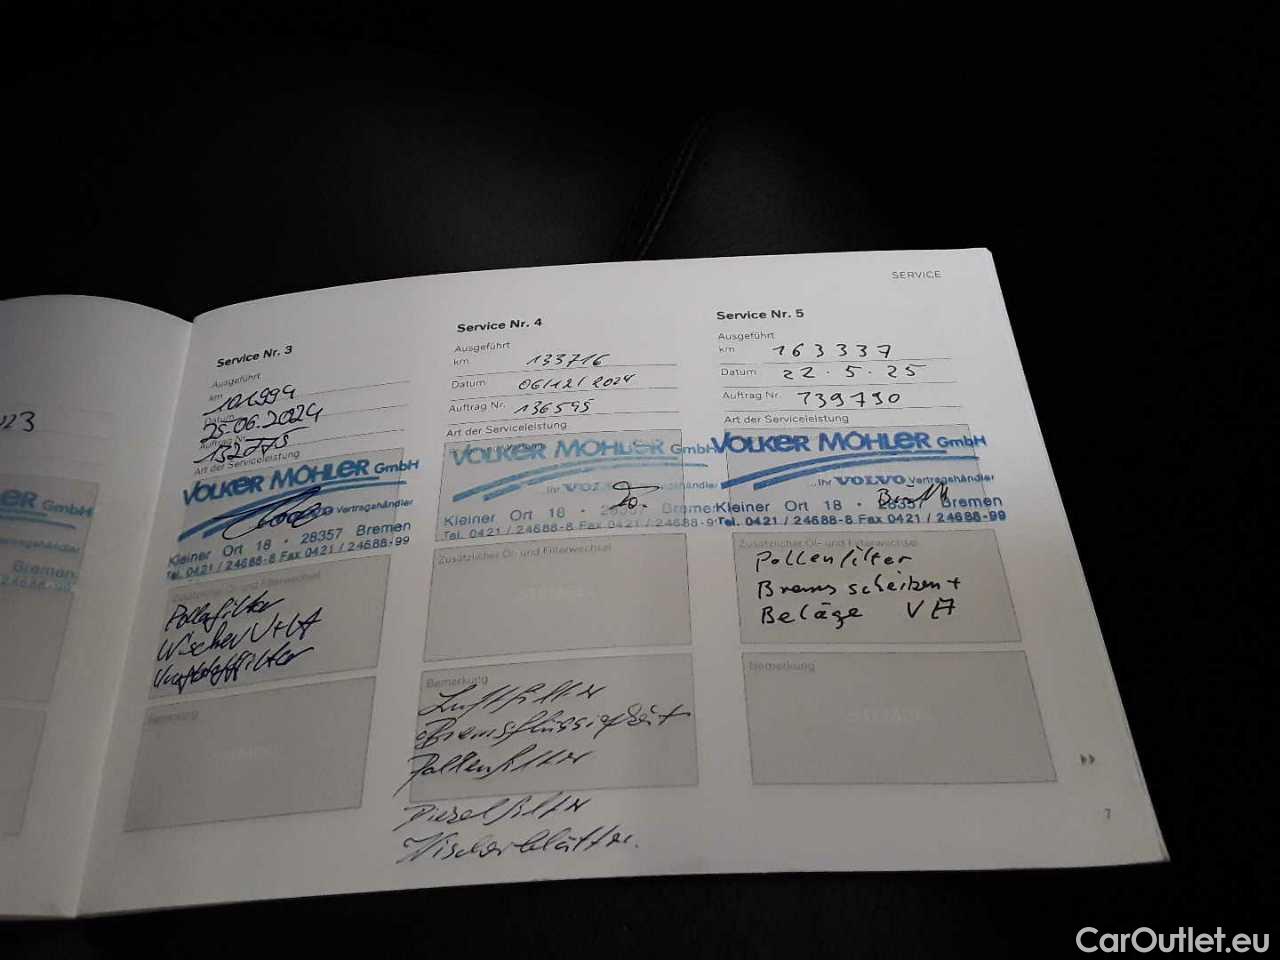 SERVICE
Service Nr. 3
Ausgeführt
km 101994
Datum 25.06.2024
Auftrag Nr. 132773
Art der Serviceleistung
VOLKER MÖHLER GmbH
Vertragshändler
Kleiner Ort 18 · 28357 Bremen
Tel. 0421 / 24688-8 Fax 0421 / 24688-99
Zusätzlicher Öl- und Filterwechsel
Pollenfilter
Wischer V+HA
Kraftstofffilter
Bemerkung
Service Nr. 4
Ausgeführt
km 133716
Datum 06/12/2024
Auftrag Nr. 136595
Art der Serviceleistung
VOLKER MÖHLER GmbH
...Ihr VOLVO Vertragshändler
Kleiner Ort 18 · 28357 Bremen
Tel. 0421 / 24688-8 Fax 0421 / 24688-9
Zusätzlicher Öl- und Filterwechsel
Bemerkung
Luftfilter
Bremsflüssigkeit
Pollenfilter
Dieselfilter
Wischerblätter.
Service Nr. 5
Ausgeführt
km 163337
Datum 22.5.25
Auftrag Nr. 739790
Art der Serviceleistung
VOLKER MÖHLER GmbH
...Ihr VOLVO Vertragshändler
Kleiner Ort 18 · 28357 Bremen
Tel. 0421 / 24688-8 Fax 0421 / 24688-99
Zusätzlicher Öl- und Filterwechsel
Pollenfilter
Bremsscheiben +
Beläge VA
Bemerkung
7
023
GmbH
Vertragshändler
Bremen
24688-99
CarOutlet.eu